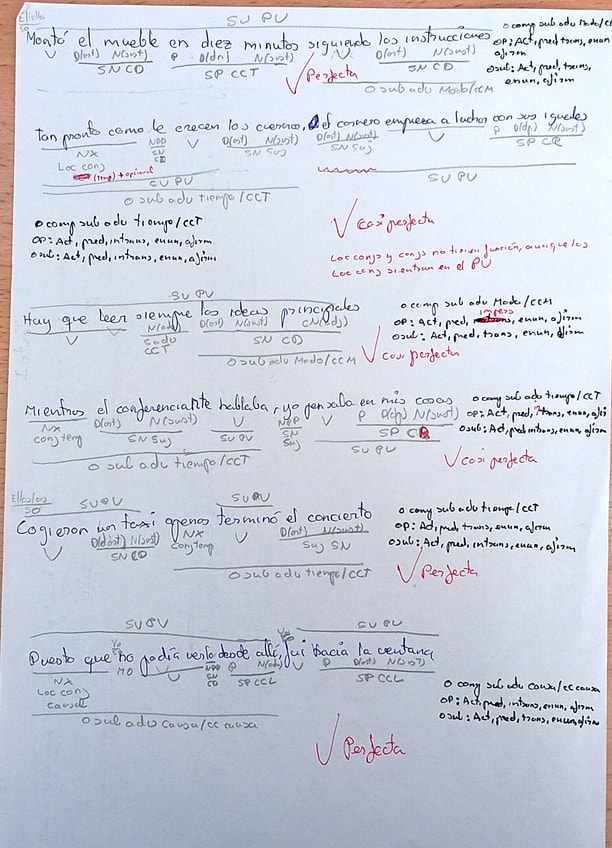 Él/ella
SO
SV PV
Montó el mueble en diez minutos siguiendo las instrucciones
V D(art) N(sust) P D(dn) N(sust) V D(art) N(sust)
SN CD SP CCT SN CD
O sub adv Modo/CCM
Perfecta
O comp sub adv Modo/CCM
OP: Act, pred, trans, enun, afirm
O sub: Act, pred, trans, enun, afirm
Tan pronto como le crecen los cuernos, el carnero empieza a luchar con sus iguales
NX NPP V D(art) N(sust) D(art) N(sust) V P D(dp) N(sust)
Loc conj SN SN Suj SN Suj SP CR
(temp) + opcional
SV PV SV PV
O sub adv tiempo/CCT
O comp sub adv tiempo/CCT
OP: Act, pred, intrans, enun, afirm
O sub: Act, pred, intrans, enun, afirm
Casi perfecta
Loc conjs y conjs no tienen función, aunque las
Loc conj sí entran en el PV
SV PV
Hay que leer siempre las ideas principales
V V N(adv) D(art) N(sust) CN(adj)
S adv SN CD
CCT
O sub adv Modo/CCM
Casi perfecta
O comp sub adv Modo/CCM
impers
OP: Act, pred, enun, afirm
O sub: Act, pred, trans, enun, afirm
Mientras el conferenciante hablaba, yo pensaba en mis cosas
NX D(art) N(sust) V NPP V P D(dp) N(sust)
conj temp SN Suj SV PV SN Suj SP CR
SV PV
O sub adv tiempo/CCT
Casi perfecta
O comp sub adv tiempo/CCT
OP: Act, pred, trans, enun, afirm
O sub: Act, pred intrans, enun, afirm
Ellos/as
SO
SV PV SV PV
Cogieron un taxi apenas terminó el concierto
V N(sust) NX V D(art) N(sust)
SN CD Conj temp Suj SN
O sub adv tiempo/CCT
Perfecta
O comp sub adv tiempo/CCT
OP: Act, pred, trans, enun, afirm
O sub: Act, pred, intrans, enun, afirm
SV PV SV PV
Yo Yo
SO
Puesto que no podía verlo desde allí, fui hacia la ventana
NX MO V NPP P N(adv) V P D(art) N(sust)
Loc conj SN CD SP CCL SP CCL
causal
O sub adv Causa/cc causa
Perfecta
O comp sub adv causa/cc causa
OP: Act, pred, intrans, enun, afirm
O sub: Act, pred, trans, enun, afirm